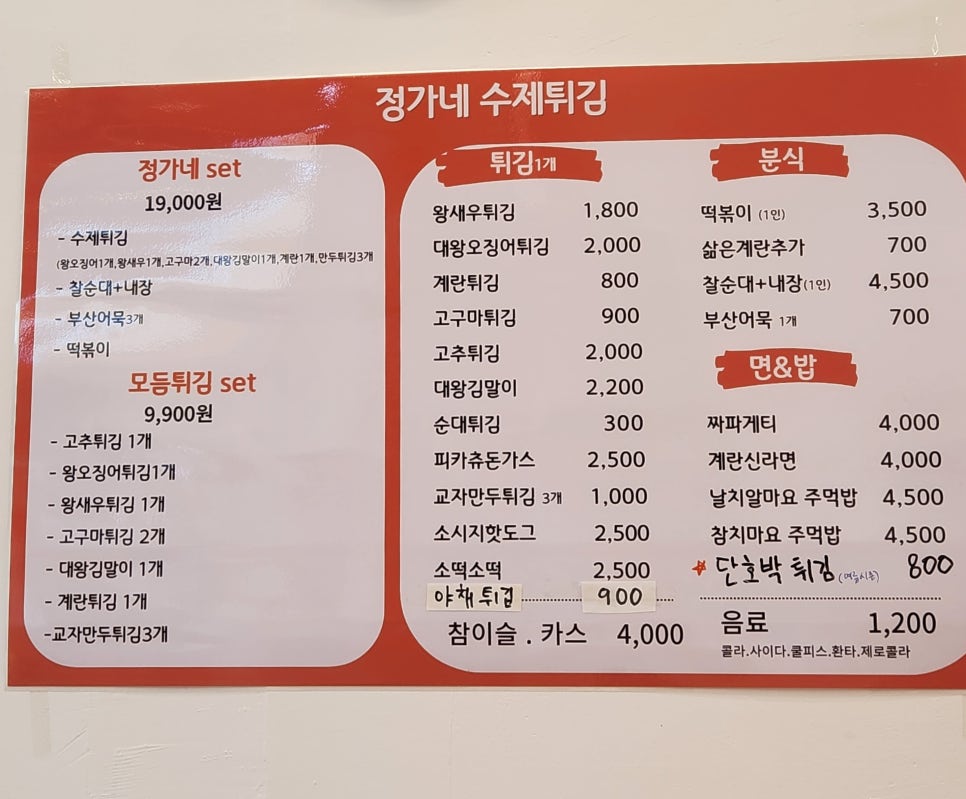 정가네 수제튀김
정가네 set
19,000원
- 수제튀김
(왕오징어1개,왕새우1개,고구마2개,대왕김말이1개,계란1개,만두튀김3개
- 찰순대+내장
- 부산어묵3개
- 떡볶이
모듬튀김 set
9,900원
- 고추튀김 1개
- 왕오징어튀김1개
- 왕새우튀김 1개
- 고구마튀김 2개
- 대왕김말이 1개
- 계란튀김 1개
-교자만두튀김3개
튀김1개
왕새우튀김 1,800
대왕오징어튀김 2,000
계란튀김 800
고구마튀김 900
고추튀김 2,000
대왕김말이 2,200
순대튀김 300
피카츄돈가스 2,500
교자만두튀김 3개 1,000
소시지핫도그 2,500
소떡소떡 2,500
야채튀김 900
참이슬 . 카스 4,000
분식
떡볶이 (1인) 3,500
삶은계란추가 700
찰순대+내장(1인) 4,500
부산어묵 1개 700
면&밥
짜파게티 4,000
계란신라면 4,000
날치알마요 주먹밥 4,500
참치마요 주먹밥 4,500
단호박 튀김 (여름시즌) 800
음료 1,200
콜라.사이다.쿨피스.환타.제로콜라